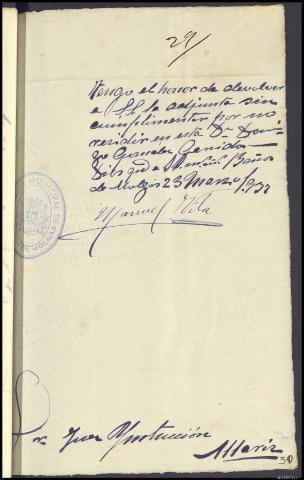 29/
Tengo el honor de devolver
a S.S. la adjunta sin
cumplimentar por no
residir en esta Dn Domin
go Gonzalez
Dios gue a Baños
de Molgas 23 Marzo 1937
Manuel Vila
MUNICIPAL
Sr Juez Ynstrucción
Allariz
30